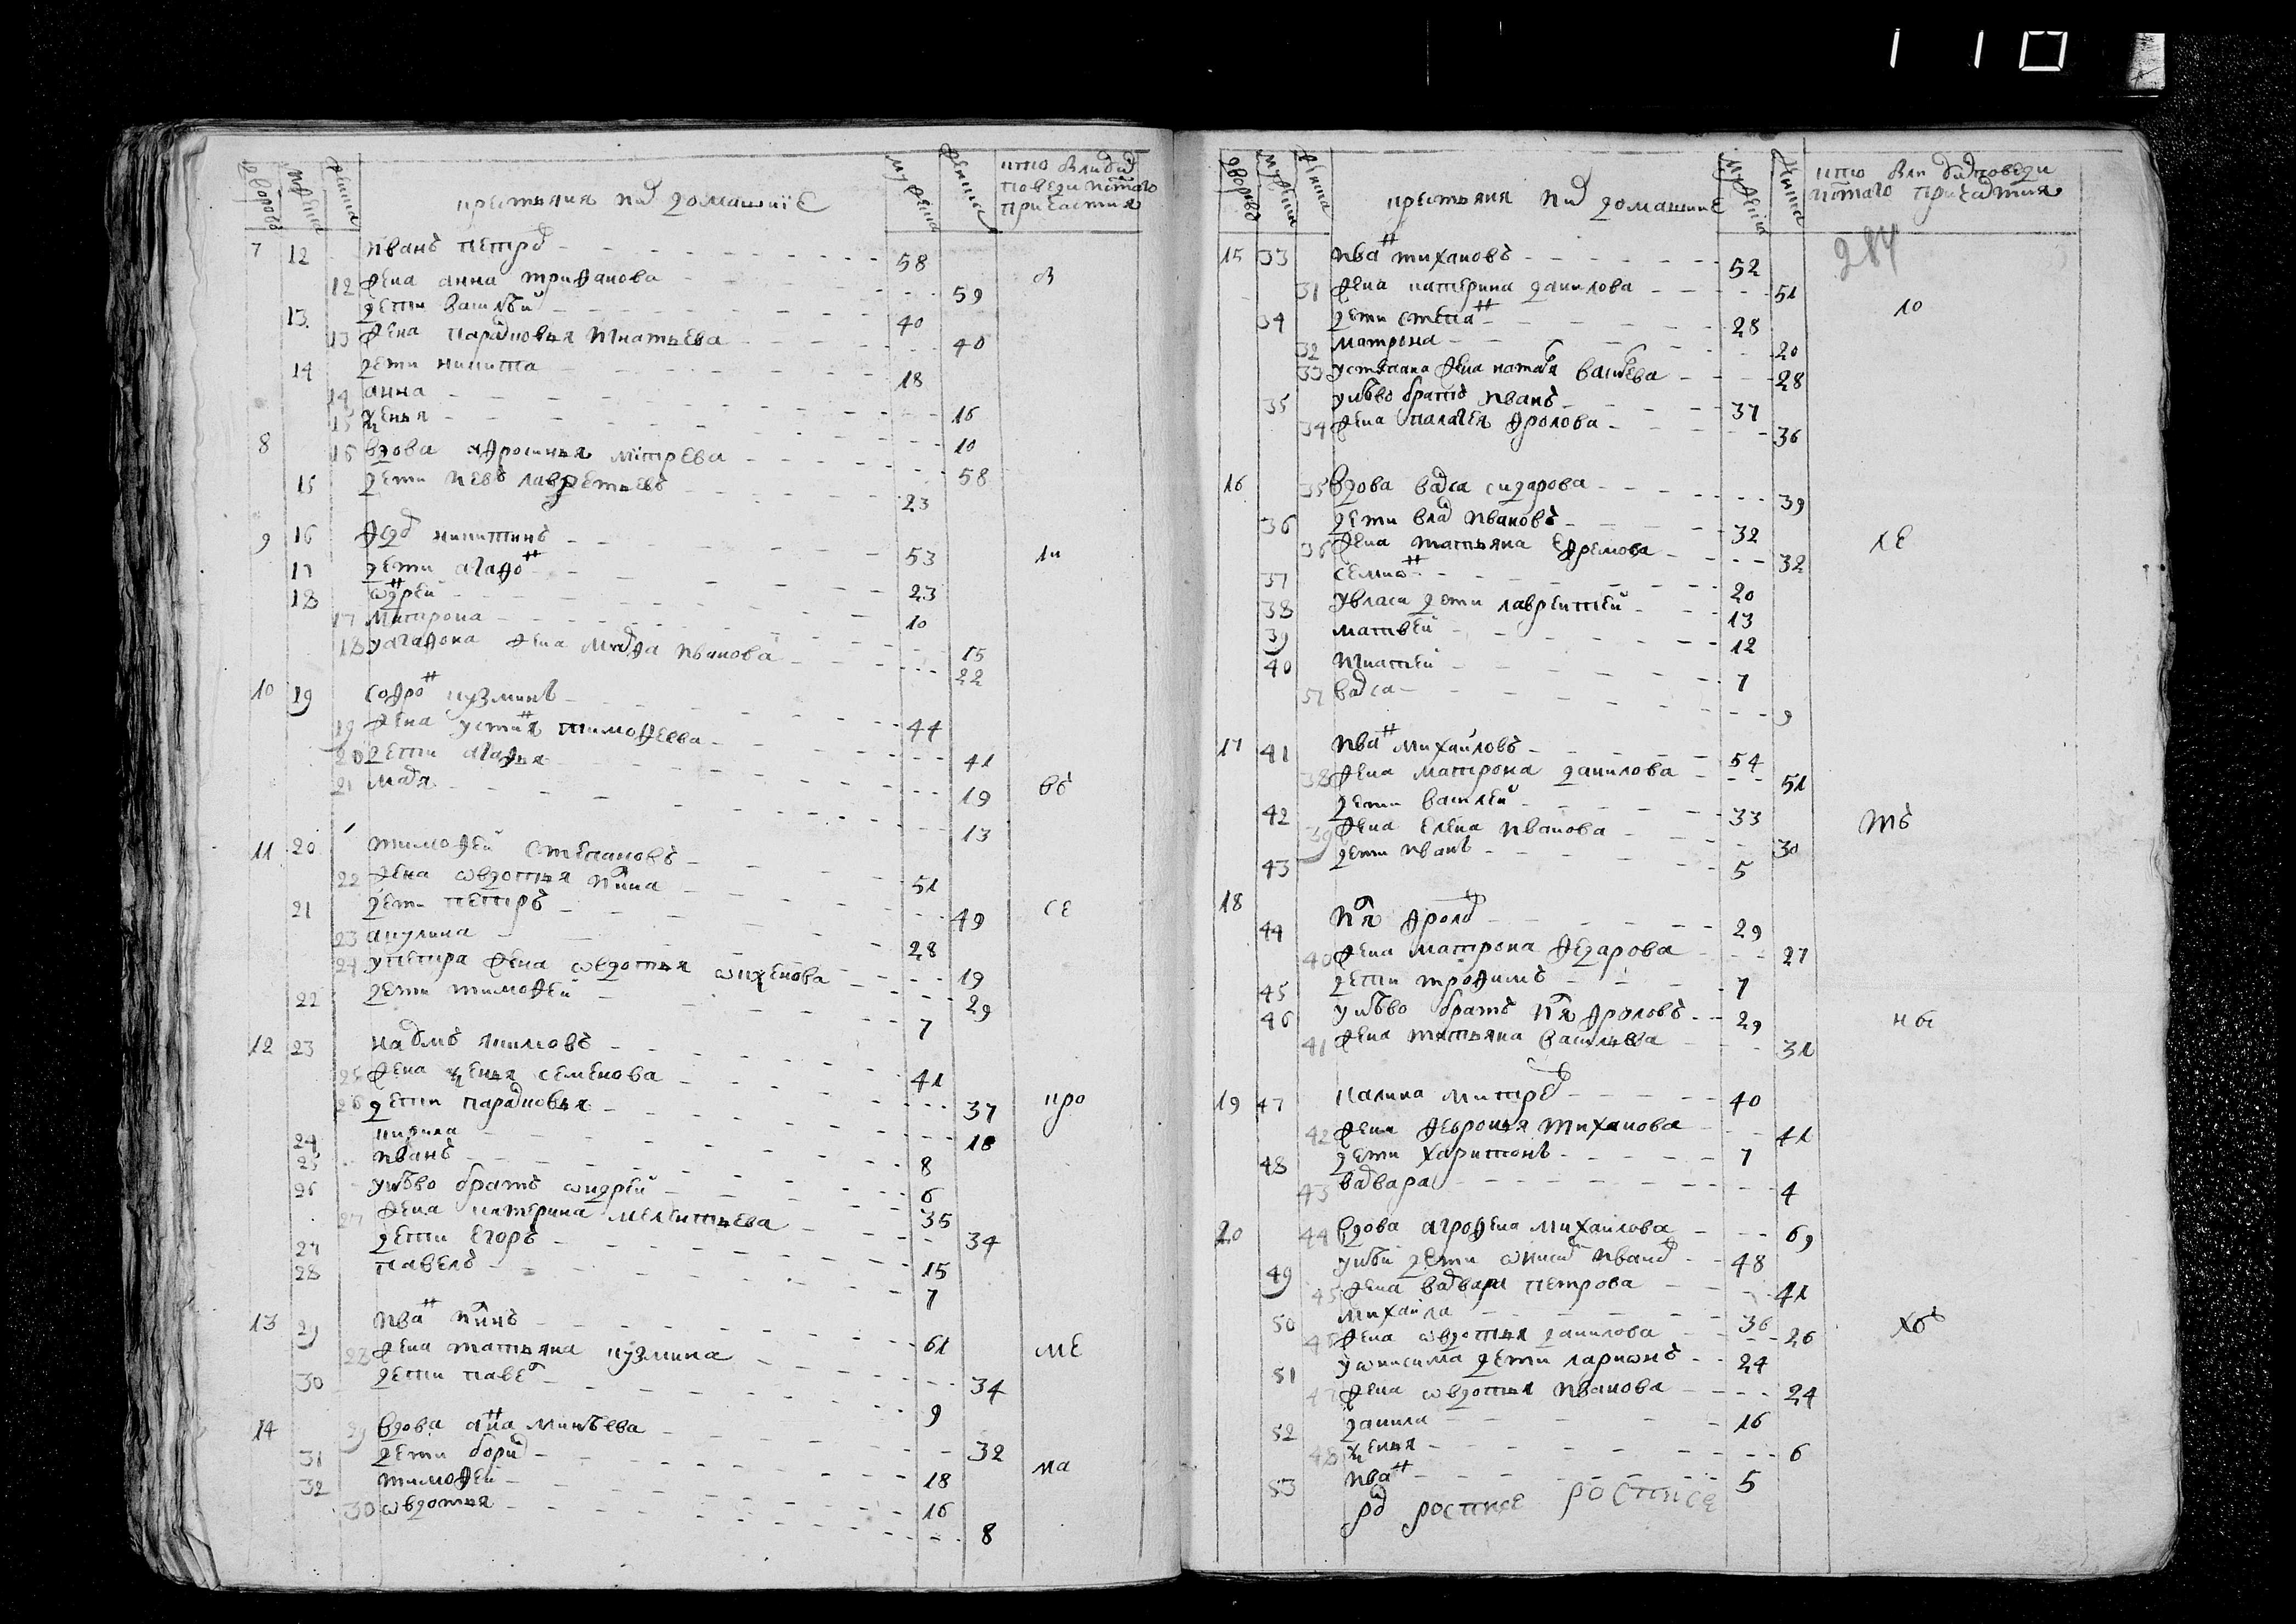 110
дворовъ мужеска женска крестьяня и их домашніе мужеска женска кто были у исповеди и святаго причастия
7 12 иванъ петровъ 58
12 жена анна трифанова 59 он
13 дети василей 40
13 жена парасковья игнатьева 40
14 дети никита 18
14 анна 16
15 ксенья 10
8 16 вдова афросинья митрева 58
15 дети иевъ лаврентьевъ 23
9 16 федоръ никитинъ 53 ли
17 дети агафонъ 23
18 ѡндрей 10
17 матрона 15
18 у агафона жена марфа иванова 22
10 19 софронъ кузминъ 44
19 жена устинья тимофеева 41
20 дети агафья 19 въ
21 марья 13
11 20 тимофей степановъ 51
22 жена ѡвдотья ильина 49 се
21 дети петръ 28
23 акулина 19
24 у петра жена ѡвдотья
22 дети тимофей 7
12 23 якимовъ 41
25 жена ксенья семенова 37 кро
26 дети парасковья 18
24 кирила 8
25 иванъ 6
26 у нево братъ ѡндрей 35
27 жена катерина мелентьева 34
27 дети егоръ 15
28 павелъ 7
13 29 иванъ ильинъ 61 ме
28 жена татьяна кузмина 34
30 дети павелъ 9
14 29 вдова анна минѣева 32
31 дети борисъ 18 на
32 тимофей 16
30 ѡвдотья 8
дворовъ мужеска женска крестьяня и их домашние мужеска женска кто были у исповеди и святаго причастия
284
15 33 иванъ тихановъ 52
31 жена катерина данилова 51 10
34 дети степанъ 28
32 матрона 20
33 у степана жена наталья васильева 28
35 у нѣво братъ иванъ 37
34 жена палагея фролова 36
16 35 вдова васса сидарова 39
36 дети власъ ивановъ 32 ле
36 жена татьяна ефремова 32
37 семиѡнъ 20
38 у власа дети лаврентей 13
39 матвей 12
40 игнатей 7
37 васса 9
17 41 иванъ михайловъ 54
38 жена матрона данилова 51
42 дети василей 33 тъ
39 жена елена иванова 30
43 дети иванъ 5
18 44 илья фроловъ 29
40 жена матрона федарова 27
45 дети трофимъ 7
46 у нѣво братъ илья фроловъ 29 ны
41 жена татьяна васильева 31
19 47 калина митревъ 40
42 жена февронья тиханова 41
48 дети харитонъ 7
43 варвара 4
20 44 вдова агрофена михаилова 69
49 у нѣй дети ѡнисимъ ивановъ 48
45 жена варвара петрова 41
50 михаила 36 хъ
46 жена ѡвдотья данилова 26
51 у ѡнисима дети лариѡнъ 24
47 жена ѡвдотья иванова 24
52 данила 16
48 ксенья 6
53 иванъ 5
росписе росписе